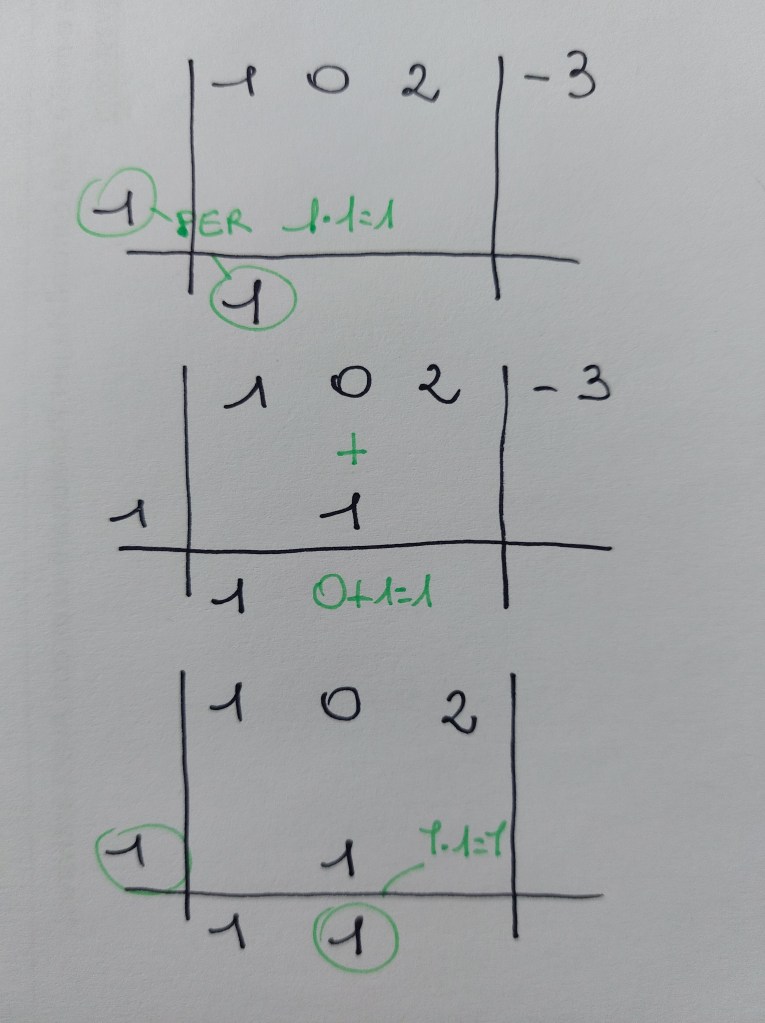 1 0 2 -3
1 PER 1·1=1
1
1 0 2 -3
+
1 1
1 0+1=1
1 0 2
1 1 1·1=1
1 1